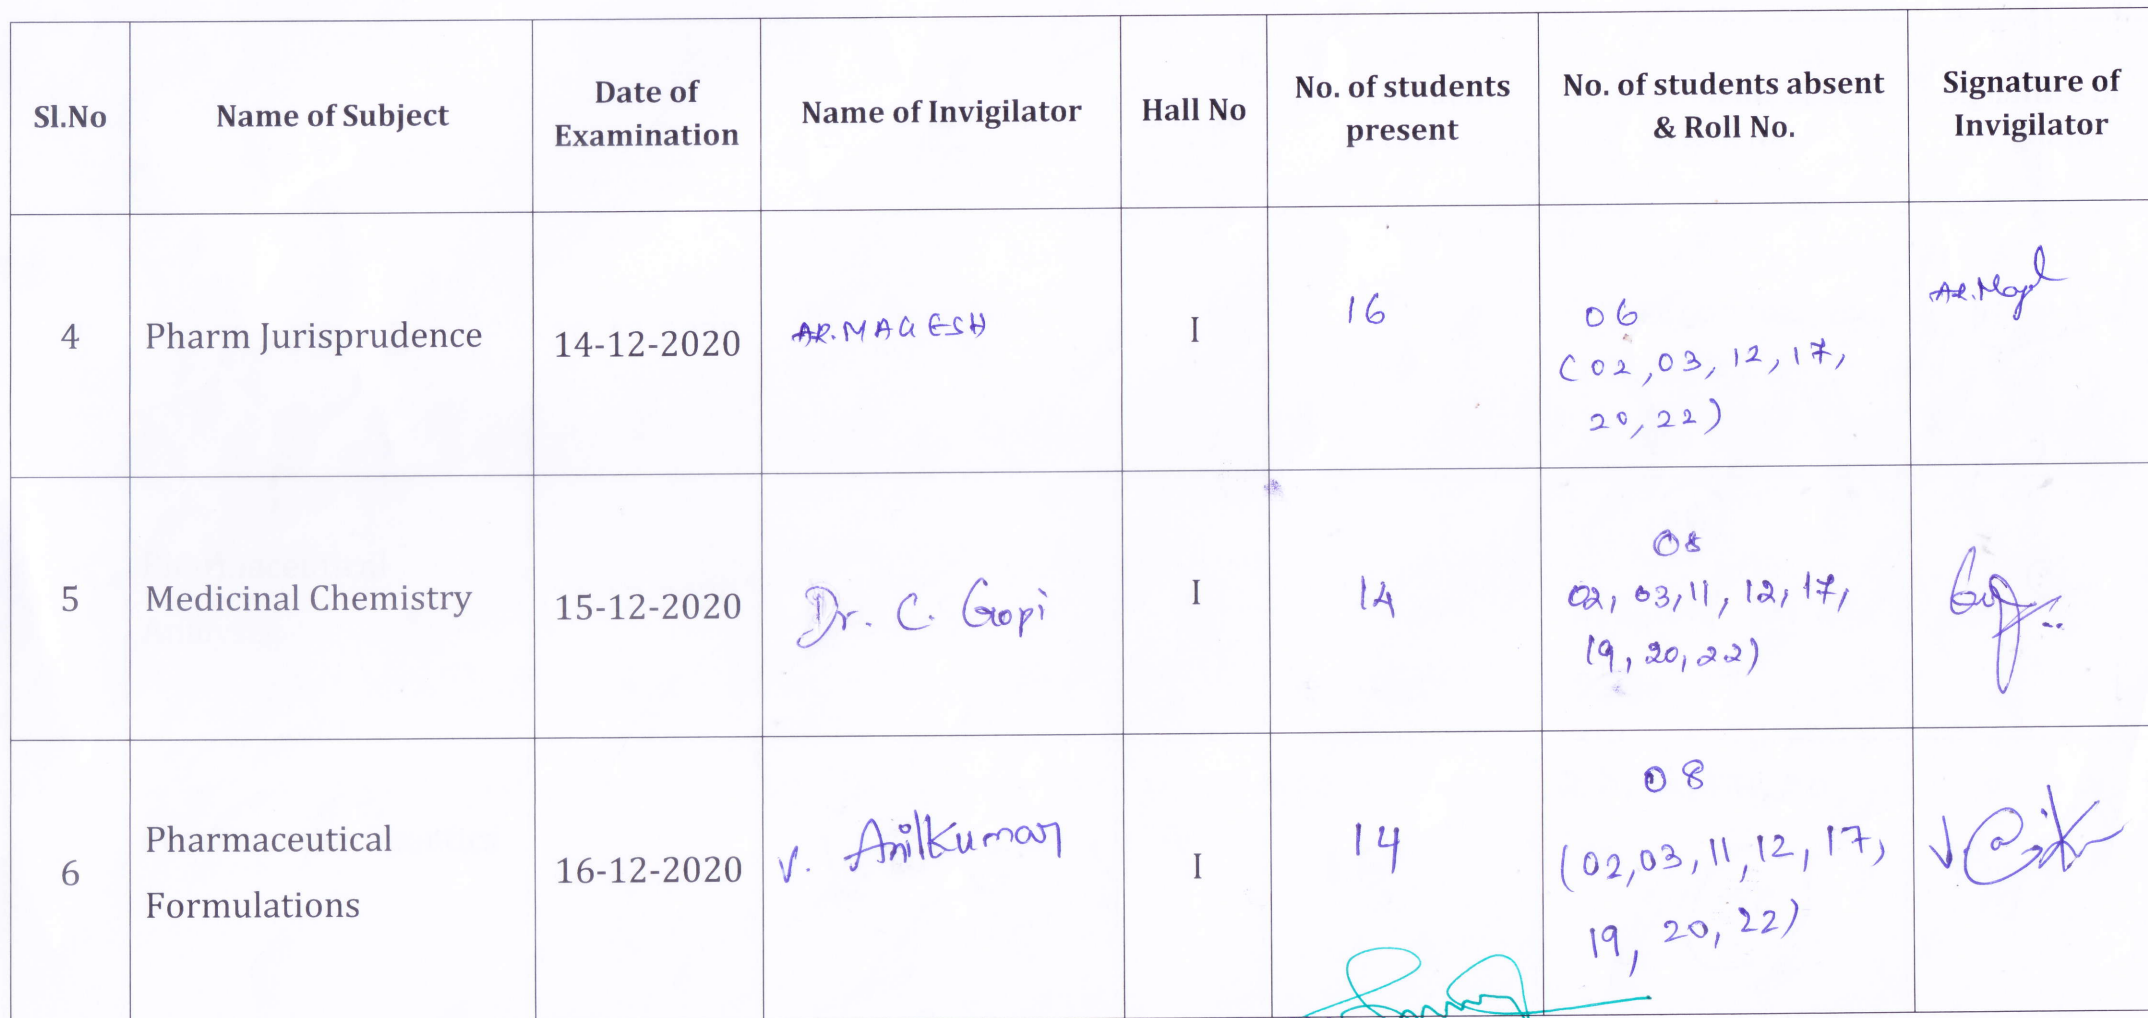 Sl.No
Name of Subject
Date of
Examination
Name of Invigilator
Hall No
No. of students
present
No. of students absent
& Roll No.
Signature of
Invigilator
4
Pharm Jurisprudence
14-12-2020
AR.MAGESH
I
16
06
(02,03,12,17,
20,22)
5
Medicinal Chemistry
15-12-2020
Dr. C. Gopi
I
14
08
02,03,11,12,17,
19,20,22)
6
Pharmaceutical
Formulations
16-12-2020
V. Anilkumar
I
14
08
(02,03,11,12,17,
19,20,22)